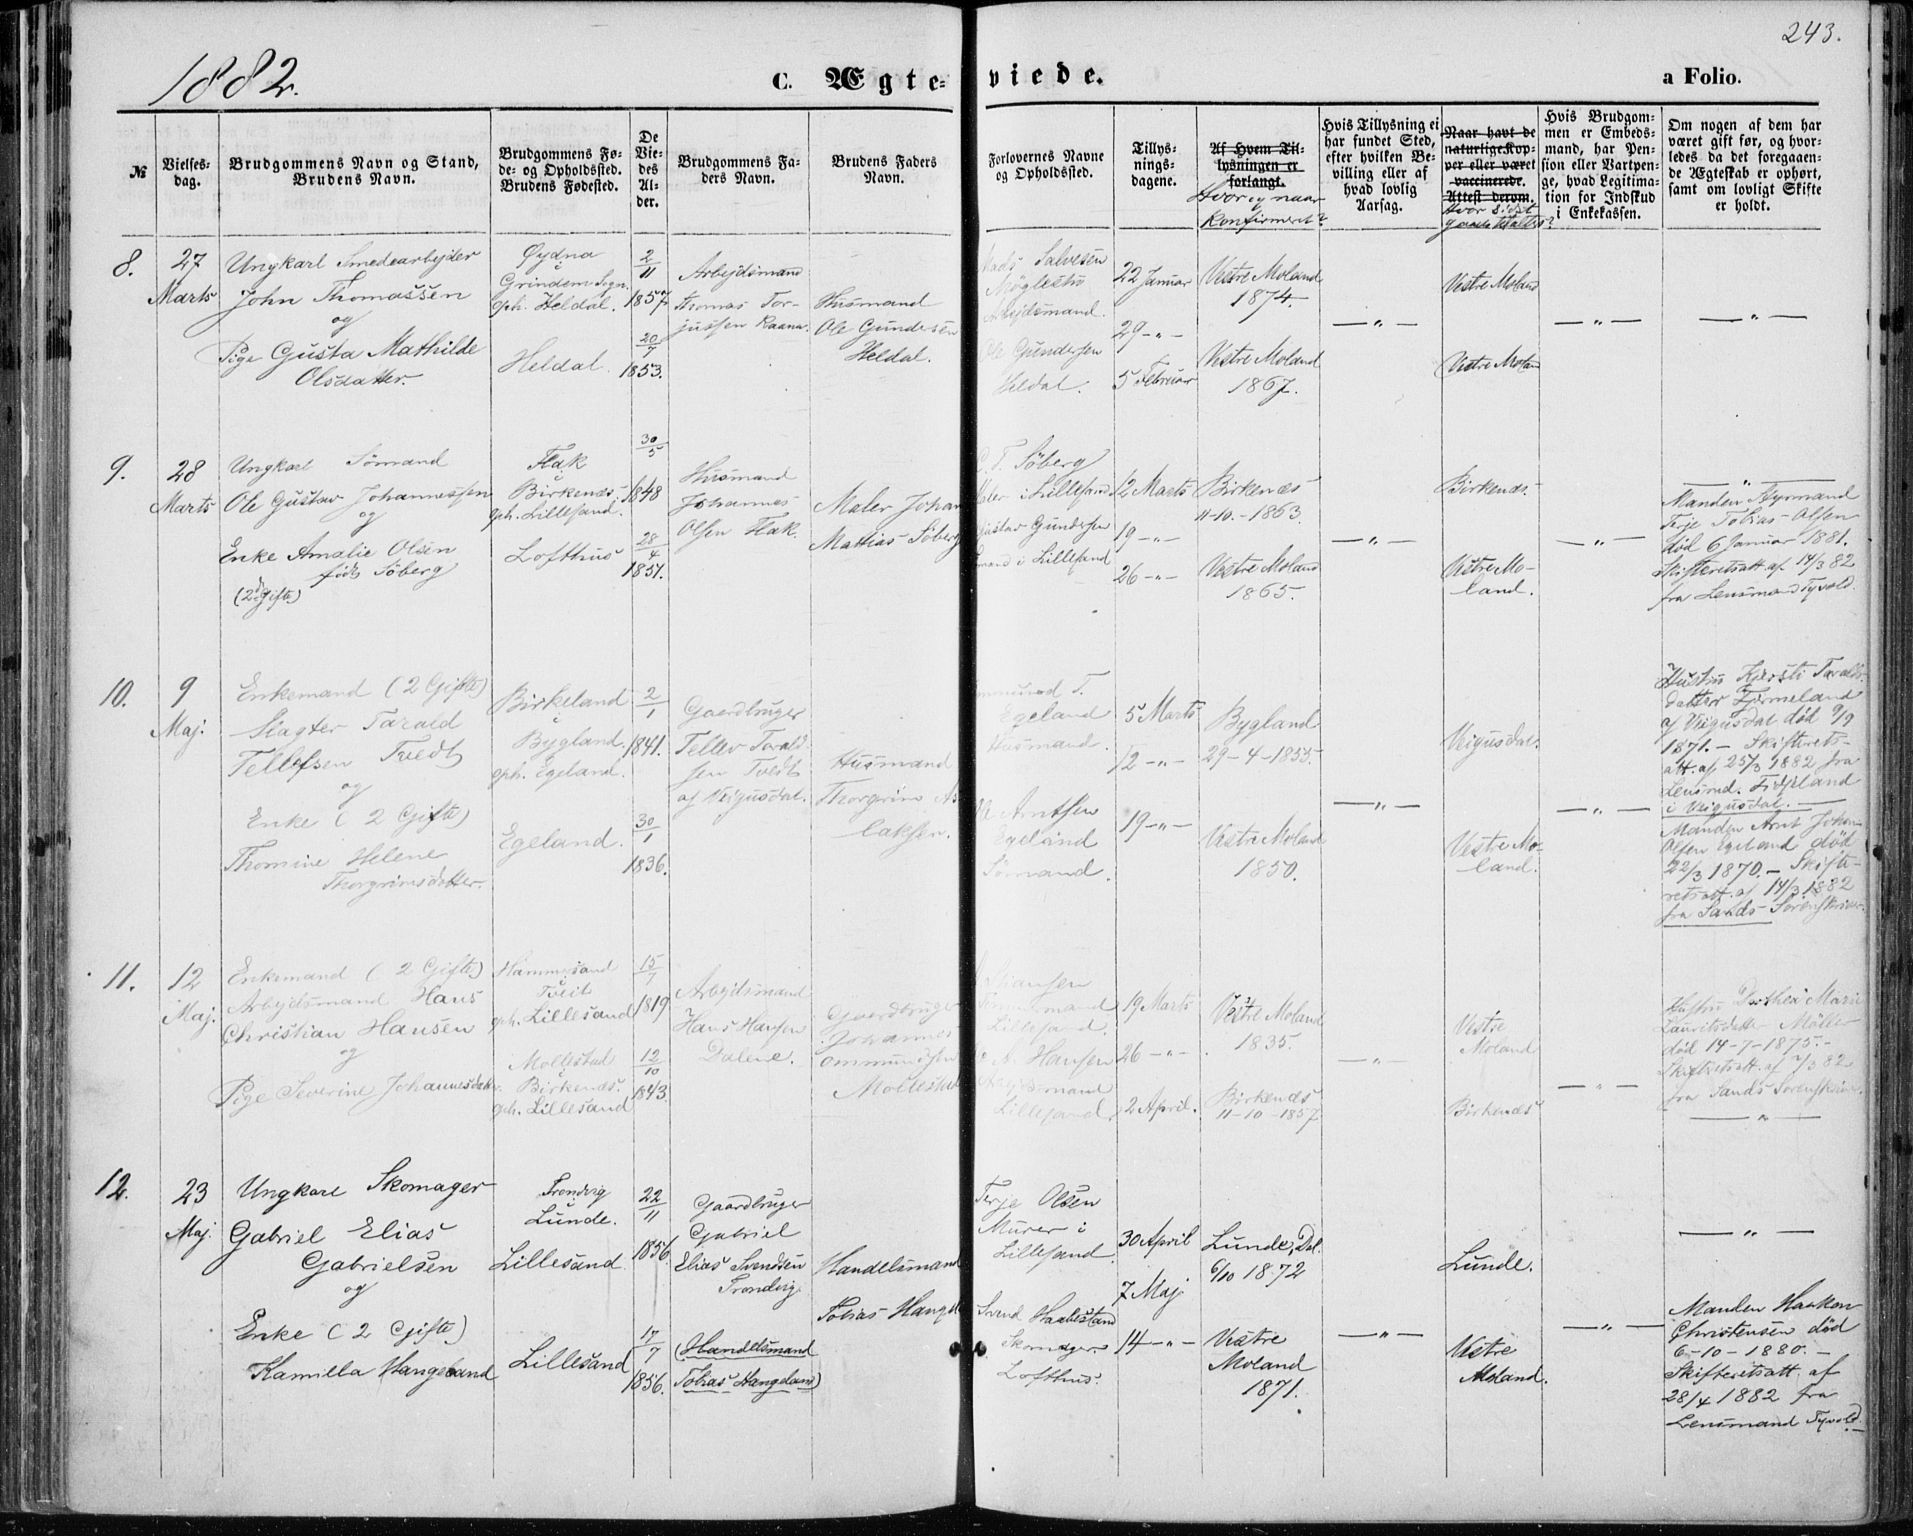 1882.
C. Ægte-
viede.
a Folio.
243.
№
Vielses-
dag.
Brudgommens Navn og Stand,
Brudens Navn.
Brudgommens Fø-
de- og Opholdssted.
Brudens Fødested.
De
Vie-
des
Al-
der.
Brudgommens Fa-
ders Navn.
Brudens Faders
Navn.
Forlovernes Navne
og Opholdssted.
Tillys-
nings-
dagene.
Af Hvem Til-
lysningen er
forlangt.
Hvor og naar
Konfirmeret?
Hvis Tillysning ei
har fundet Sted,
efter hvilken Be-
villing eller af
hvad lovlig
Aarsag.
Naar havt de
naturlige Kop-
per eller været
vaccinerede.
Attest derom.
Hvor sidst
Hvis Brudgom-
men er Embeds-
mand, har Pen-
sion eller Vartpen-
ge, hvad Legitima-
tion for Indskud
i Enkekassen.
Om nogen af dem har
været gift før, og hvor-
ledes da det foregaaen-
de Ægteskab er ophørt,
samt om lovligt Skifte
er holdt.
8.
27
Marts
Ungkarl Smedearbejder
John Thomassen
og
Pige Gusta Mathilde
Olsdatter.
Øydna
i
Grindem Sogn.
oph. Heldal.
Heldal.
2/11
1857
20/7
1853.
Arbejdsmand
Thomas Tor-
jussen Raana.
Husmand
Ole Gundersen
Heldal.
Mads Salvesen
Møglestu
Arbejdsmand.
Ole Gundersen
Heldal.
22 Januar
29 -„-
5 Februar
Vestre Moland
1874.
Vestre Moland
1867.
—„—
Vestre Moland
Vestre Molan
—„—
—„—
9.
28
Marts
Ungkarl Sømand
Ole Gustav Johannessen
og
Enke Amalie Olsen
født Söberg
(2d Gifte)
Flak
i
Birkenæs.
oph. Lillesand.
Lofthus
30/5
1848
28/4
1851.
Husmand
Johannes
Olsen Flak.
Maler Johan
Mathias Söberg
C. T. Söberg
Maler i Lillesand
Gustav Gundersen
Sømand i Lillesand
12 Marts
19 -„-
26 -„-
Birkenæs
11-10.-1863.
Vestre Moland
1865.
—„—
Birkenæs.
Vestre Mo-
land.
—„—
—„—
Manden Styrmand
Terje Tobias Olsen
død 6 Januar 1881.
Skifteretsatt. af 14/3 82
fra Lensmand Tyvold.
10.
9
Maj.
Enkemand (2 Gifte)
Slagter Tarald
Tellefsen Tvedt
og
Enke (2 Gifte)
Thomine Helene
Thorgrimsdatter.
Birkeland
i
Bygland.
oph. Egeland.
Egeland.
2/1
1841.
30/1
1836.
Gaardbruger
Tellev Tarald-
sen Tvedt
af Veigusdal.
Husmand
Thorgrim As-
laksen.
Egeland
Husmand.
Arntsen
Egeland
Sømand.
5 Marts
12 -„-
19 -„-
Bygland
29-4-1855.
Vestre Moland
1850.
—„—
Veigusdal.
Vestre Mo-
land.
—„—
Hustru Kjersti Taralds-
datter Fjermeland
af Veigusdal død 9/9
1871. - Skifterets-
att. af 25/3 1882 fra
Lensmd.
i Veigusdal.
Manden Arnt Johan
Olsen Egeland død
22/3 1870. - Skifte-
retsatt. af 14/3 1882
fra Sands Sorenskriver.
11.
12
Maj.
Enkemand (2 Gifte)
Arbejdsmand Hans
Christian Hansen
og
Pige Severine Johannesdatter.
Hammersand
i
Tveit
oph. Lillesand
Mollestad
i
Birkenæs.
oph. Lillesand
15/7
1819
12/10
1843.
Arbejdsmand
Hans Hansen
Dalene.
Gaardbruger
Johannes
Ommundsen
Mollestad
Lillesand.
A. Hansen
Arbejdsmand
Lillesand.
19 Marts
26 -„-
2 April.
Vestre Moland
1835.
Birkenæs
11-10-1857
—„—
Vestre
Moland
Birkenæs
—„—
Hustru Dorthea Marie
Lauritsdatter Møller
død 14-7-1875.-
Skifteretsatt. af 7/3 82
fra Sands Sorenskriver.
—„—
12.
23
Maj.
Ungkarl Skomager
Gabriel Elias
Gabrielsen
og
Enke (2 Gifte)
Kamilla Hangeland
Trondvig
i
Lunde.
Lillesand.
Lillesand
22/11
1856.
17/7
1856.
Gaardbruger
Gabriel
Elias Svendsen
Trondvig
(Handelsmand
Tobias Hangeland)
Handelsmand
Tobias Hangel
Terje Olsen
Murer i
Lillesand.
Svend Haabestad
Skomager
Lofthus.
30 April
7 Maj
14 -„-
Lunde, Dal.
6/10 1872
Vestre
Moland
1871.
—„—
Lunde.
Vestre
Moland.
—„—
—„—
Manden Haakon
Christensen død
6-10-1880.-
Skifteretsatt. af
28/4 1882 fra
Lensmand Tyvold.